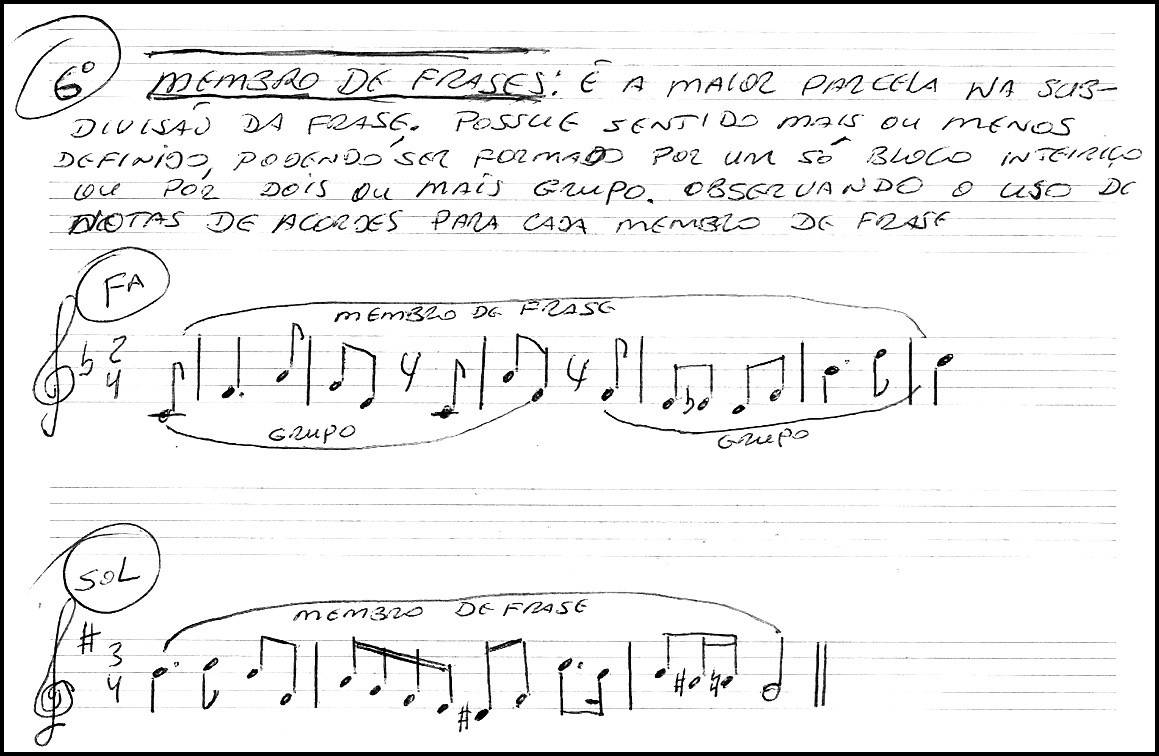 6º
MEMBRO DE FRASES: É A MAIOR PARCELA NA SUB-
DIVISÃO DA FRASE. POSSUE SENTIDO MAIS OU MENOS
DEFINIDO, PODENDO SER FORMADO POR UM SÓ BLOCO INTEIRIÇO
OU POR DOIS OU MAIS GRUPO. OBSERVANDO O USO DE
NOTAS DE ACORDES PARA CADA MEMBRO DE FRASE
FA
MEMBRO DE FRASE
2
4
GRUPO
GRUPO
SOL
MEMBRO DE FRASE
3
4